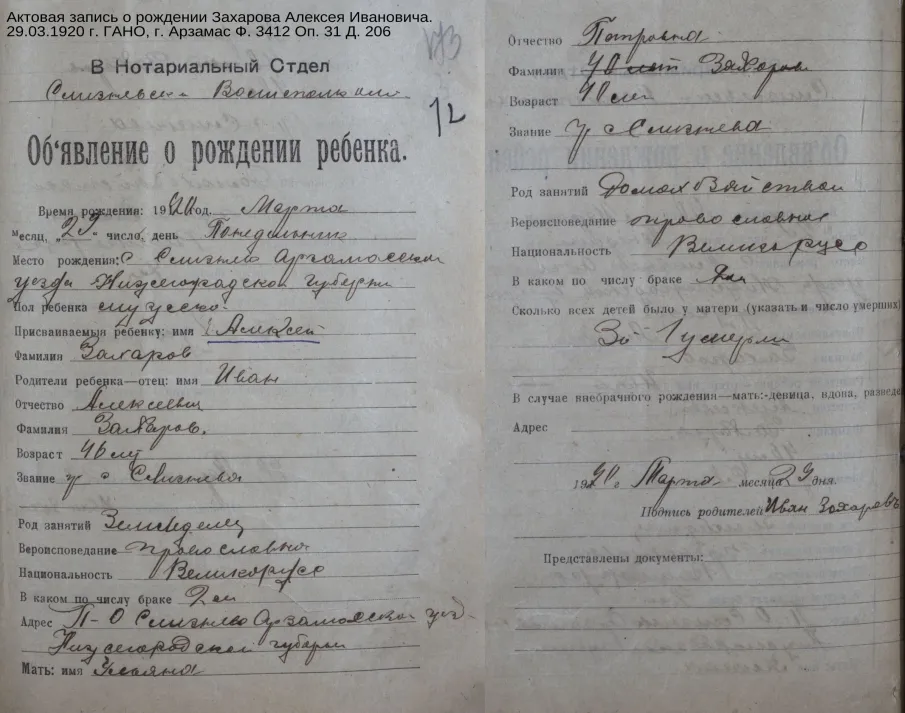 Актовая запись о рождении Захарова Алексея Ивановича.
29.03.1920 г. ГАНО, г. Арзамас Ф. 3412 Оп. 31 Д. 206
173
В Нотариальный Отдел
12
Об'явление о рождении ребенка.
Время рождения: 1920 год. Марта
месяц, „29" число, день Понедельник
Место рождения: с Слизнево Арзамасской
уезда Нижегородской губерни
Пол ребенка мужско.
Присваиваемыя ребенку: имя Алексей
Фамилия Захаров
Родители ребенка—отец: имя Иван
Отчество Алексеевич
Фамилия Захаров.
Возраст 46 лет
Звание гр с Слизнева
Род занятий Земледелец
Вероисповедание православна
Национальность Великорусс
В каком по числу браке 2 ом
Адрес П-О Слизнево Арзамасской уез.
Нижегородской губерни
Мать: имя Ульяна
Отчество Петровна
Фамилия 40 лет Захарова
Возраст 40 лет
Звание гр с Слизнева
Род занятий
Вероисповедание православная
Национальность Великорусс
В каком по числу браке
Сколько всех детей было у матери (указать и число умерших)
В случае внебрачного рождения—мать:-девица, вдова, разведе
Адрес
1920 г Марта месяца 29 дня.
Подпись родителей Иван Захаровъ
Представлены документы: